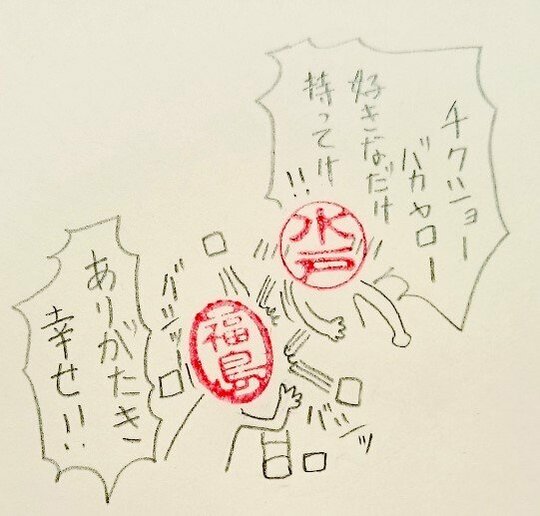 チクショー
バカヤロー
好きなだけ
持ってけ
!!
水戸
バシッ
福島
バシッ
ありがたき
幸せ!!